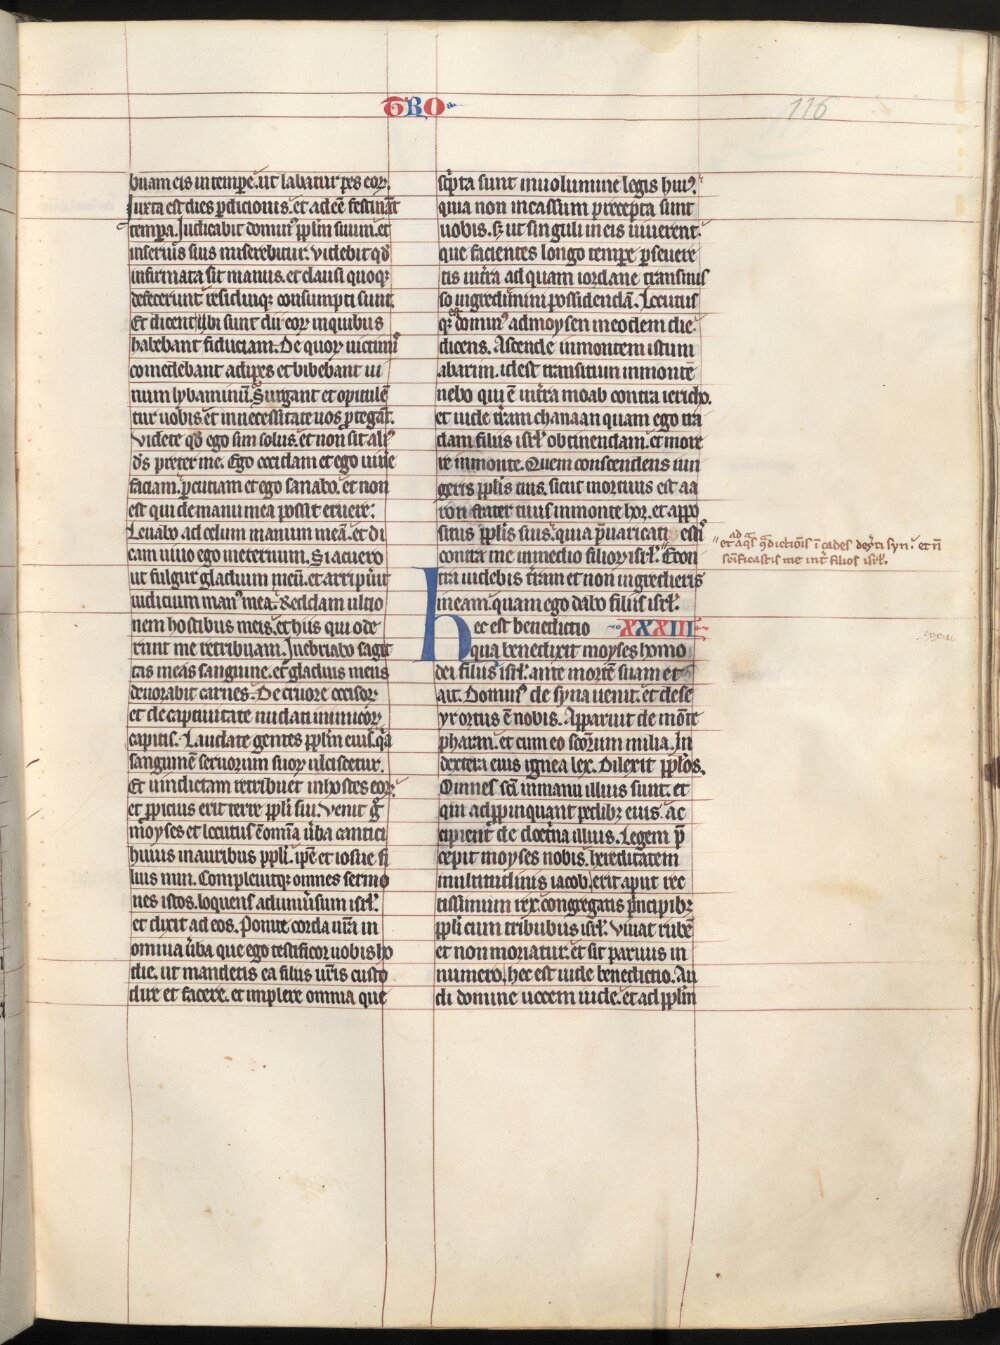 TRO
116
buam eis in tempe. ut labatur pes eoꝝ.
Juxta est dies pdicionis. et adeē festināt
tempa. Judicabit domin᷒ pplm suum. et
in servis suis miserebitur. videbit qđ
infirmata sit manus. et clausi quoqꝫ
defecerunt residuiqꝫ consumpti sunt.
Et dicent ubi sunt dii eoꝝ in quibus
habebant fiduciam. De quoꝝ victimis
comedebant adipes et bibebant ui
num lybaminū. Surgant et opitulē
tur uobis et in necessitate uos ptegāt.
Videte qđ ego sim solus. et non sit ali᷒
ds preter me. Ego occidam et ego uiuere
faciam. pcutiam et ego sanabo. et non
est qui de manu mea possit eruere.
Leuabo ad celum manum meā. et di
cam uiuo ego in eternum. Si acuero
ut fulgur gladium meū. et arripuit
iudicium man᷒ mea. Reddam ultio
nem hostibus meis. et hiis qui ode
runt me retribuam. Inebriabo sagit
tas meas sanguine. et gladius meus
deuorabit carnes. De cruore occisoꝝ
et de captiuitate nudati inimicoꝝ
capitis. Laudate gentes pplm eius. qa
sanguinē seruorum suoꝝ ulciscetur.
Et uindictam retribuet in hostes eoꝝ.
et ppicius erit terre ppli sui. Venit g
moyses et locutus ē omia uba cantici
huius in auribus ppli. ipe et iosue fi
lius nun. Compleuitqꝫ omnes sermo
nes istos. loquens ad uniusum isrl.
et dixit ad eos. Ponite corda ura in
omnia uba que ego testificor uobis ho
die. ut mandetis ea filiis uris custo
dire et facere. et implere omnia que
scpta sunt in uolumine legis hui᷒.
quia non incassum precepta sunt
uobis. sꝫ ut singuli in eis uiuerent.
que facientes longo tempe pseuere
tis in tra ad quam iordane transmis
so ingredimini possidendā. Locutus
qꝫ est domin᷒ ad moysen in eodem die
dicens. Ascende in montem istum
abarim. id est transitum in montē
nebo qui ē in tra moab contra iericho.
et uide tram chanaan quam ego tra
dam filiis isrl obtinendam. et more
re in monte. Quem conscendens iun
geris pplis tuis. sicut mortuus est aa
ron frater tuus in monte hor. et appo
situs pplis suis. quia puaricati estis
contra me in medio filioꝝ isrl. Econ
tra uidebis tram et non ingredieris
in eam. quam ego dabo filiis isrl.
Hec est benedictio XXXIII
qua benedixit moyses homo
dei filiis isrl. ante mortē suam et
ait. Domin᷒ de syna uenit. et de se
yr ortus ē nobis. Apparuit de mōte
pharan. et cum eo scōrum milia. In
dextera eius ignea lex. Dilexit pplos.
Omnes sci in manu illius sunt. et
qui adppinquant pedibꝫ eius. ac
cipient de doctna illius. Legem p
cepit moyses nobis. hereditatem
multitudinis iacob. erit aput rec
tissimum rex. congregatis pncipibꝫ
ppli cum tribubus isrl. Viuat rubē
et non moriatur. et sit paruus in
numero. hec est iude benedictio. Au
di domine uocem iude. et ad pplm
et ad aqs ɔdictiois ī cades deserti syn. et n
scificastis me int filios isrl.